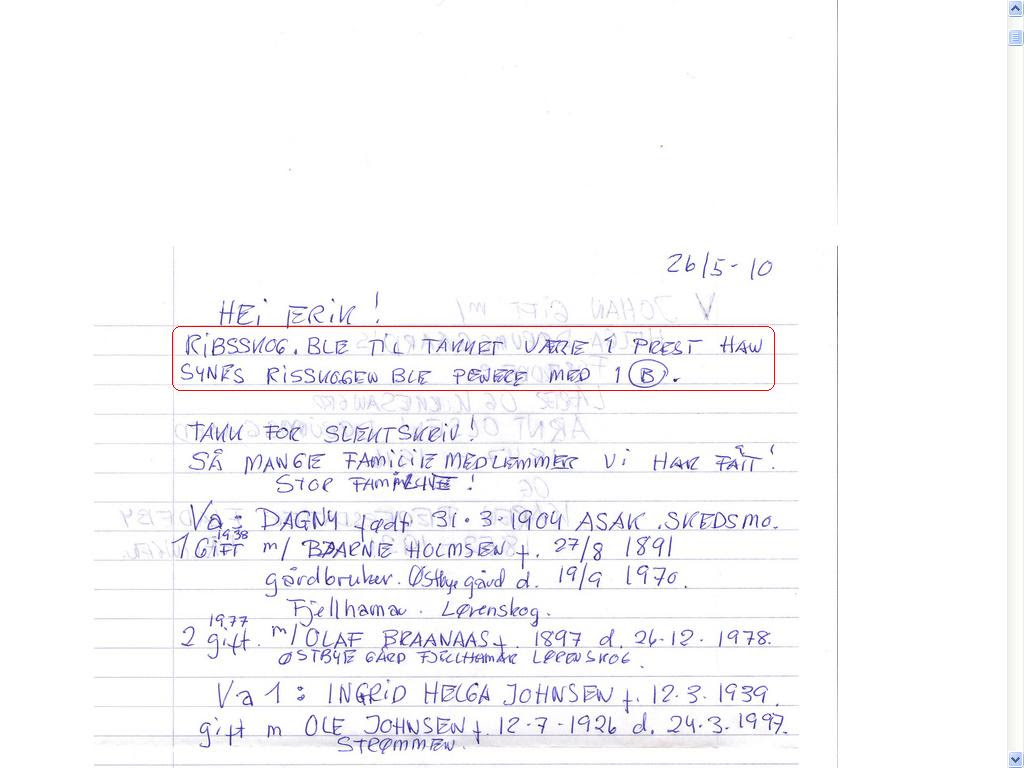 26/5-10
HEI ERIK!
RIBSSKOG. BLE TIL TAKKET VÆRE 1 PREST HAN
SYNES RISSKOGEN BLE PENERE MED 1 B.
TAKK FOR SLEKTSKRIV!
SÅ MANGE FAMILIE MEDLEMMER VI HAR FÅTT!
STOR FAMILIE!
Va: DAGNY født 31.3.1904 ASAK. SKEDSMO.
1938
1 GIFT m/ BJARNE HOLMSEN f. 27/8 1891
gårdbruker. Østbye gård d. 19/9 1970.
Fjellhamar. Lørenskog.
1977
2 gift. m/ OLAF BRAANAAS f. 1897 d. 26.12.1978.
ØSTBYE GÅRD FJELLHAMAR LØRENSKOG.
Va 1: INGRID HELGA JOHNSEN f. 12.3.1939.
gift m OLE JOHNSEN f. 12-7-1926 d. 24.3.1997.
STRØMMEN.